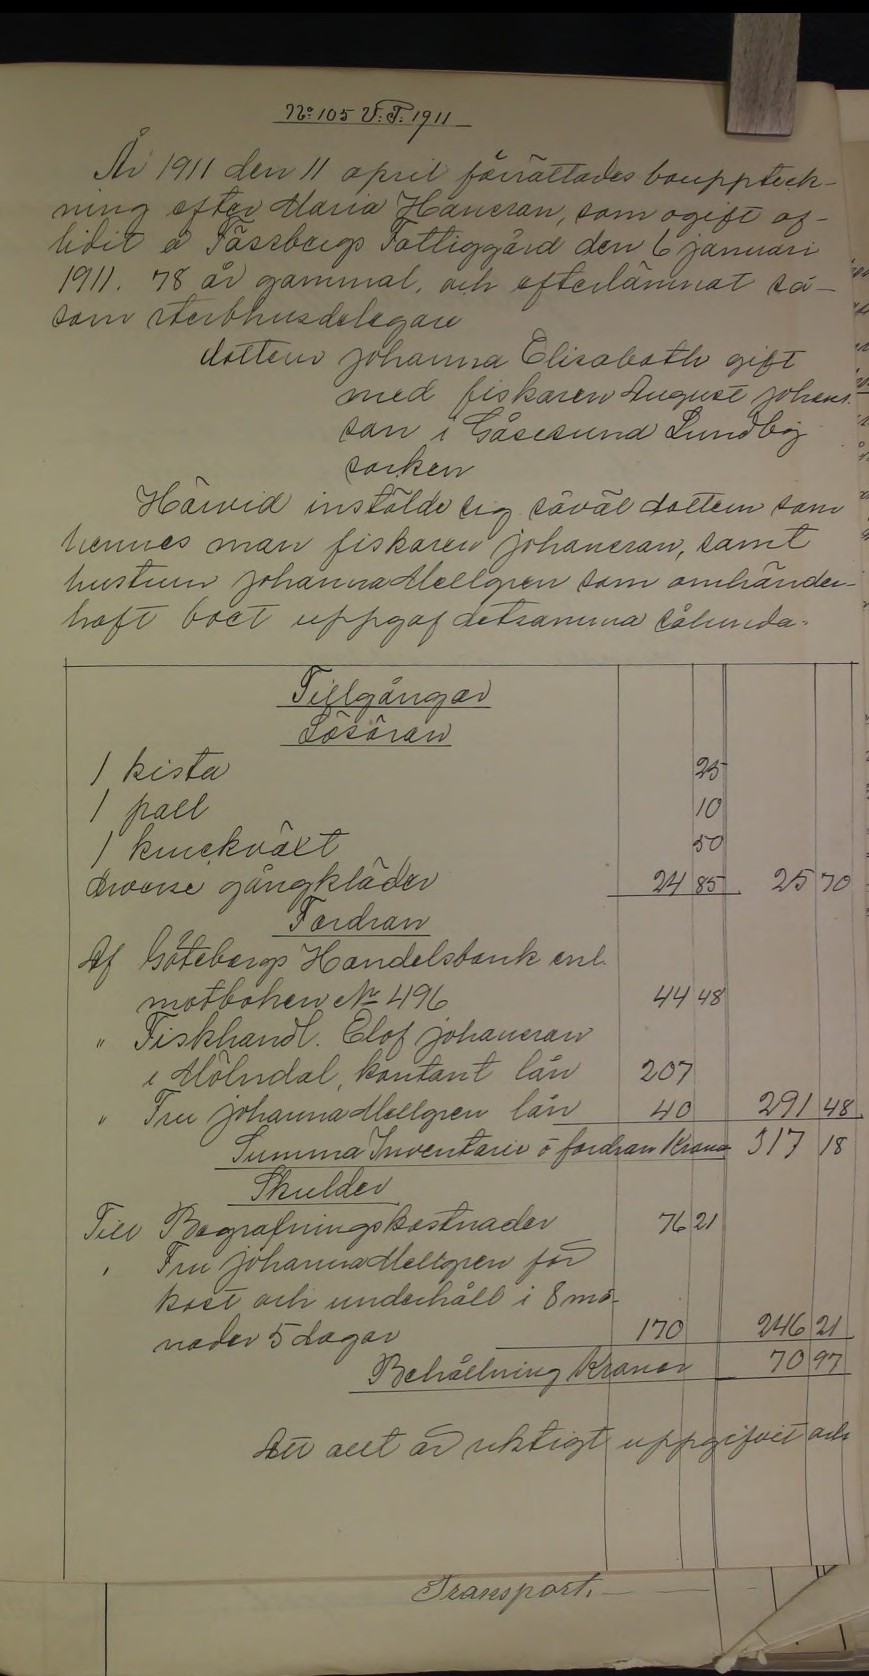 No 105 V.T. 1911
År 1911 den 11 april förrättades bouppteck-
ning efter Maria Hansson, som ogift af-
lidit å Fässbergs Fattiggård den 6 januari
1911. 78 år gammal, och efterlämnat så-
som sterbhusdelegare
dottern Johanna Elisabeth gift
med fiskaren August Johans
son i Gåsesund Lundby
socken
Härvid instälde sig såväl dottern som
hennes man fiskaren Johansson, samt
hustrun Johanna Mellgren som omhänder-
haft boet uppgaf detsamma sålunda.
Tillgångar
Lösören
1 kista 25
1 pall 10
1 krukväxt 50
diverse gångkläder 24 85 25 70
Fordran
Af Göteborgs Handelsbank enl.
motboken No 496 44 48
" Fiskhandl. Elof Johansson
i Mölndal, kontant lån 207
" Fru Johanna Mellgren lån 40 291 48
Summa Inventarie o fordran Kronor 317 18
Skulder
Till Begrafningskostnader 76 21
" Fru Johanna Mellgren för
kost och underhåll i 8 må-
nader 5 dagar 170 246 21
Behållning Kronor 70 97
Att allt är riktigt uppgifvet och
Transport.